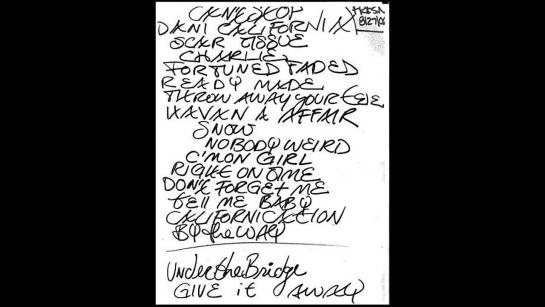 CANT STOP
DANI CALIFORNIA
SCAR TISSUE
CHARLIE
FORTUNED FADED
READY MADE
THROW AWAY YOUR TELE
HAVANA AFFAIR
SNOW
NOBODY WEIRD
C'MON GIRL
RIGHT ON TIME
DON'T FORGET ME
tell ME BABY
CALIFORNICATION
BY the WAY
Under the Bridge
GIVE it AWAY